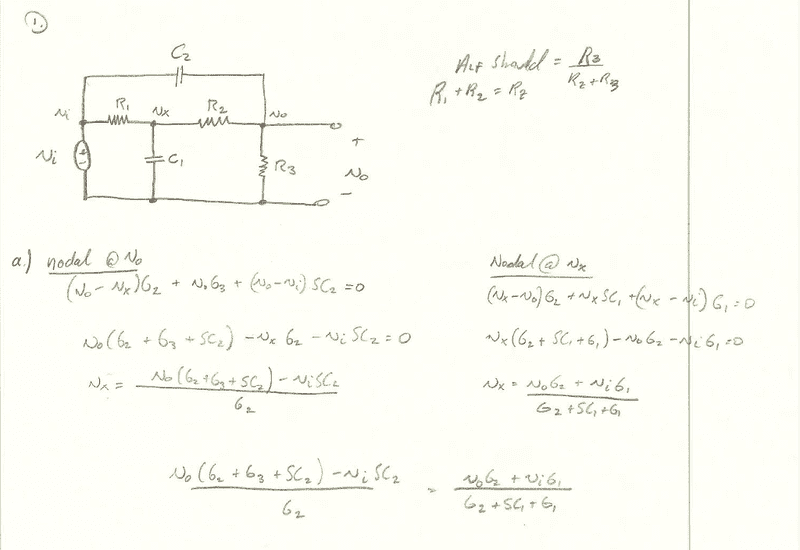 1.
C2
Vi R1 Vx R2 Vo
Vi C1 R3 + Vo -
ALF should = R3 / (R2 + R3)
R1 + R2 = R2
a.) nodal @ Vo
(Vo - Vx)G2 + VoG3 + (Vo - Vi) SC2 = 0
Vo(G2 + G3 + SC2) - Vx G2 - Vi SC2 = 0
Vx = (Vo(G2 + G3 + SC2) - Vi SC2) / G2
Nodal @ Vx
(Vx - Vo)G2 + Vx SC1 + (Vx - Vi) G1 = 0
Vx(G2 + SC1 + G1) - VoG2 - Vi G1 = 0
Vx = (VoG2 + Vi G1) / (G2 + SC1 + G1)
(Vo(G2 + G3 + SC2) - Vi SC2) / G2 = (VoG2 + Vi G1) / (G2 + SC1 + G1)